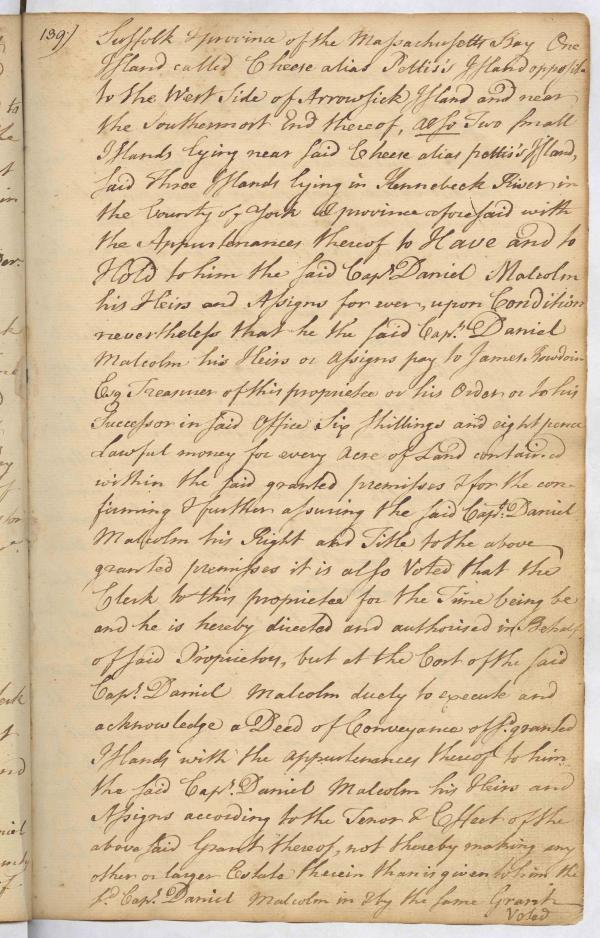 139/
Suffolk & province of the Massachusetts Bay One
Island called Cheese alias Pettis's Island opposite
to the West Side of Arrowsick Island and near
the Southermost End thereof, also Two small
Islands lying near said Cheese alias pettis's Island,
said three Islands lying in Kennebeck River in
the County of York & province aforesaid with
the Appurtenances thereof to Have and to
Hold to him the said Capt. Daniel Malcolm
his Heirs and Assigns for ever, upon Condition
nevertheless that he the said Capt. Daniel
Malcolm his Heirs or Assigns pay to James Bowdoin
Esq Treasurer of this proprietee or his Order or to his
Successor in said Office Six shillings and eight pence
Lawful money for every Acre of Land contained
within the said granted premisses & for the con-
firming & further assuring the said Capt. Daniel
Malcolm his Right and Title to the above
granted premisses it is also Voted that the
Clerk to this proprietee for the Time being be
and he is hereby directed and authorised in Behalf
of said Proprietors, but at the Cost of the said
Capt. Daniel Malcolm duely to execute and
acknowledge a Deed of Conveyance of sd. granted
Islands with the appurtenances thereof to him
the said Capt. Daniel Malcolm his Heirs and
Assigns according to the Tenor & Effect of the
above said Grant thereof, not thereby making any
other or larger Estate therein than is given to him the
sd. Capt. Daniel Malcolm in & by the same Grant
Voted